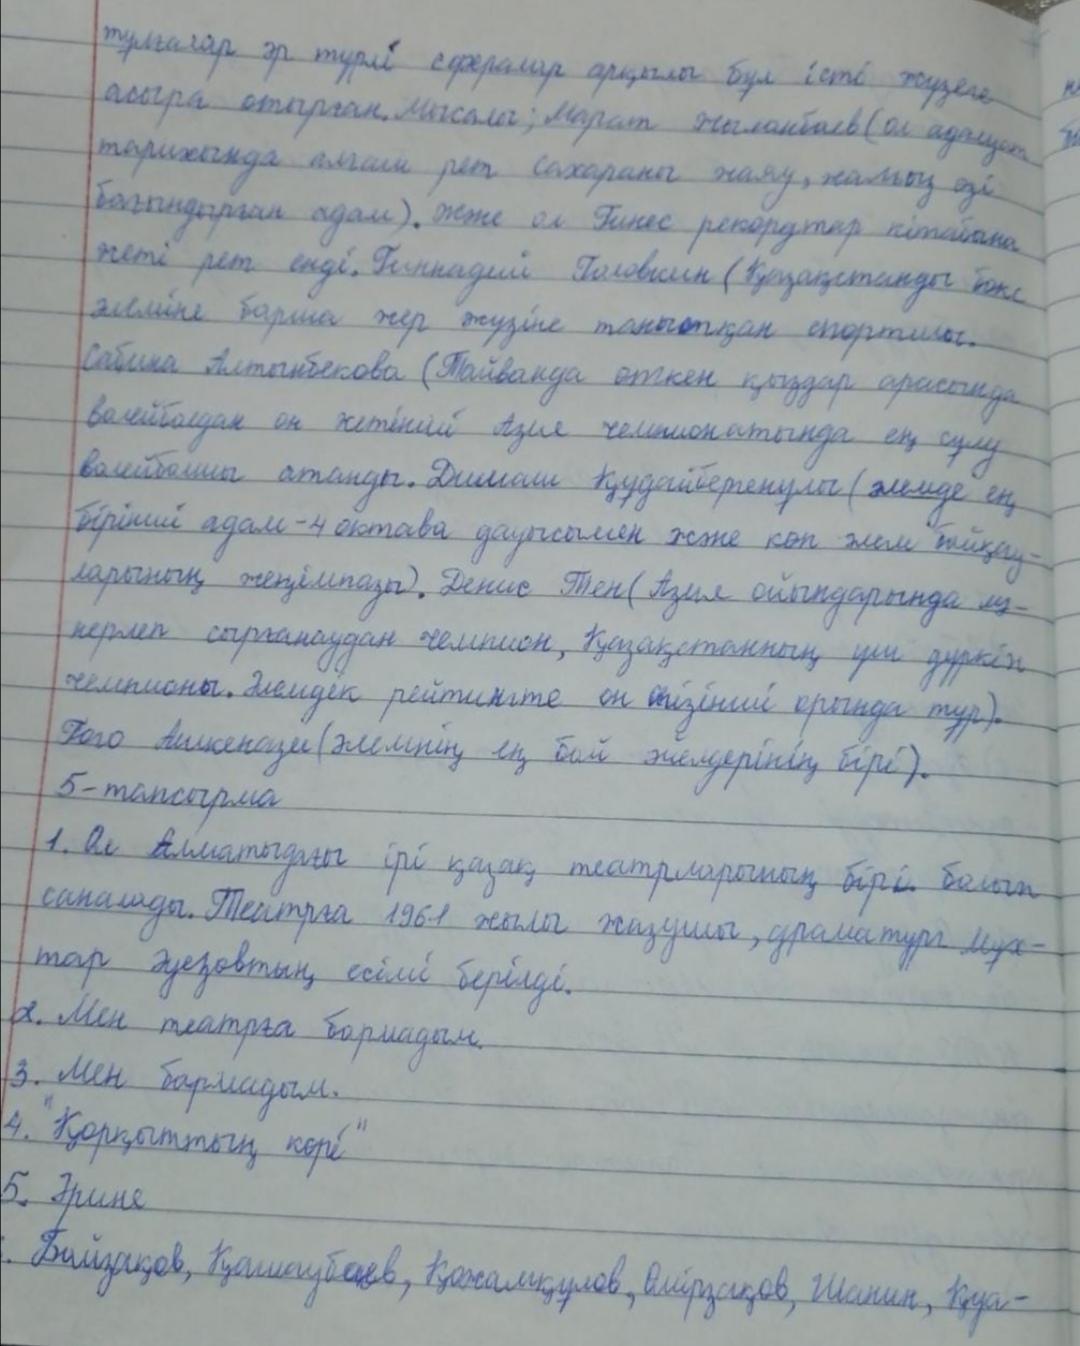 тұлғалар әр түрлі сфералар арқылы бұл істі жүзеге
асыра отырған. Мысалы; Марат Жыланбаев (ол адамзат
тарихында алғаш рет Сахараны жаяу, жалғыз өзі
бағындырған адам). Және ол Гинес рекордтар кітабына
жеті рет енді. Геннадий Головкин (Қазақстанды бокс
әлеміне барша жер жүзіне танытқан спортшы.
Сабина Алтынбекова (Тайванда өткен қыздар арасында
волейболдан он жетінші Азия чемпионатында ең сұлу
волейболшы атанды. Димаш Құдайбергенұлы (әлемде ең
бірінші адам - 4 октава дауысымен және көп әлем байқау-
ларының жеңімпазы). Денис Тен (Азия ойындарында мә-
нерлеп сырғанаудан чемпион, Қазақстанның үш дүркін
чемпионы. Әлемдек рейтингте он сегізінші орында тұр).
Гого Ашкенази (әлемнің ең бай әйелдерінің бірі).
5-тапсырма
1. Ол Алматыдағы ірі қазақ театрларының бірі болып
саналады. Театрға 1961 жылы жазушы, драматург Мұх-
тар Әуезовтың есімі берілді.
2. Мен театрға бармадым.
3. Мен бармадым.
4. "Қорқыттың көрі"
5. Әрине
Байзақов, Қашаубаев, Қожамқұлов, Өмірзақов, Шанин, Қуа-